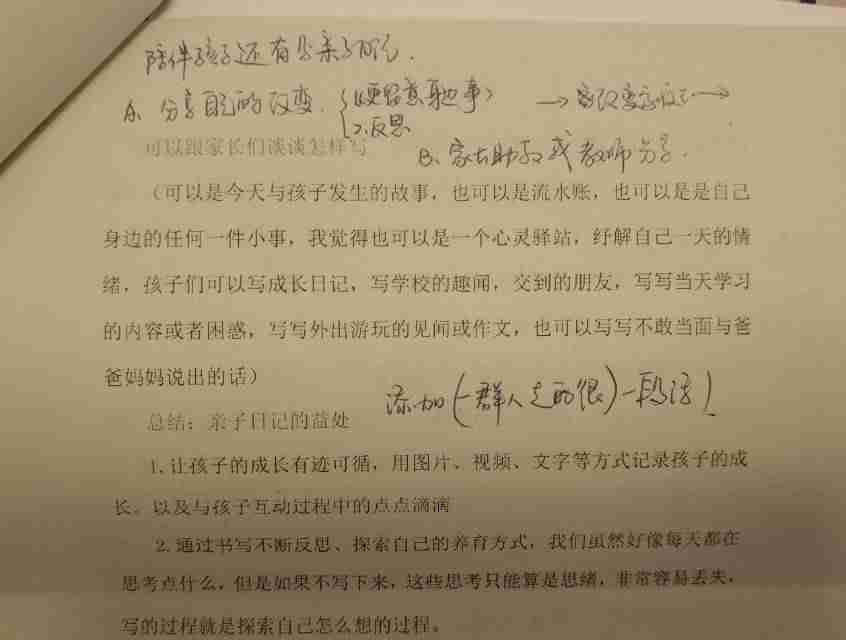 陪伴孩子还有
A、分享自己的改变. {1、更留意身边事
2、反思
B、家长助教或教师分享.
可以跟家长们谈谈怎样写
(可以是今天与孩子发生的故事，也可以是流水账，也可以是是自己
身边的任何一件小事，我觉得也可以是一个心灵驿站，纾解自己一天的情
绪，孩子们可以写成长日记，写学校的趣闻，交到的朋友，写写当天学习
的内容或者困惑，写写外出游玩的见闻或作文，也可以写写不敢当面与爸
爸妈妈说出的话)
添加(一群人走的很)一段话
总结：亲子日记的益处
1.让孩子的成长有迹可循，用图片、视频、文字等方式记录孩子的成
长。以及与孩子互动过程中的点点滴滴
2.通过书写不断反思、探索自己的养育方式，我们虽然好像每天都在
思考点什么，但是如果不写下来，这些思考只能算是思绪，非常容易丢失，
写的过程就是探索自己怎么想的过程。